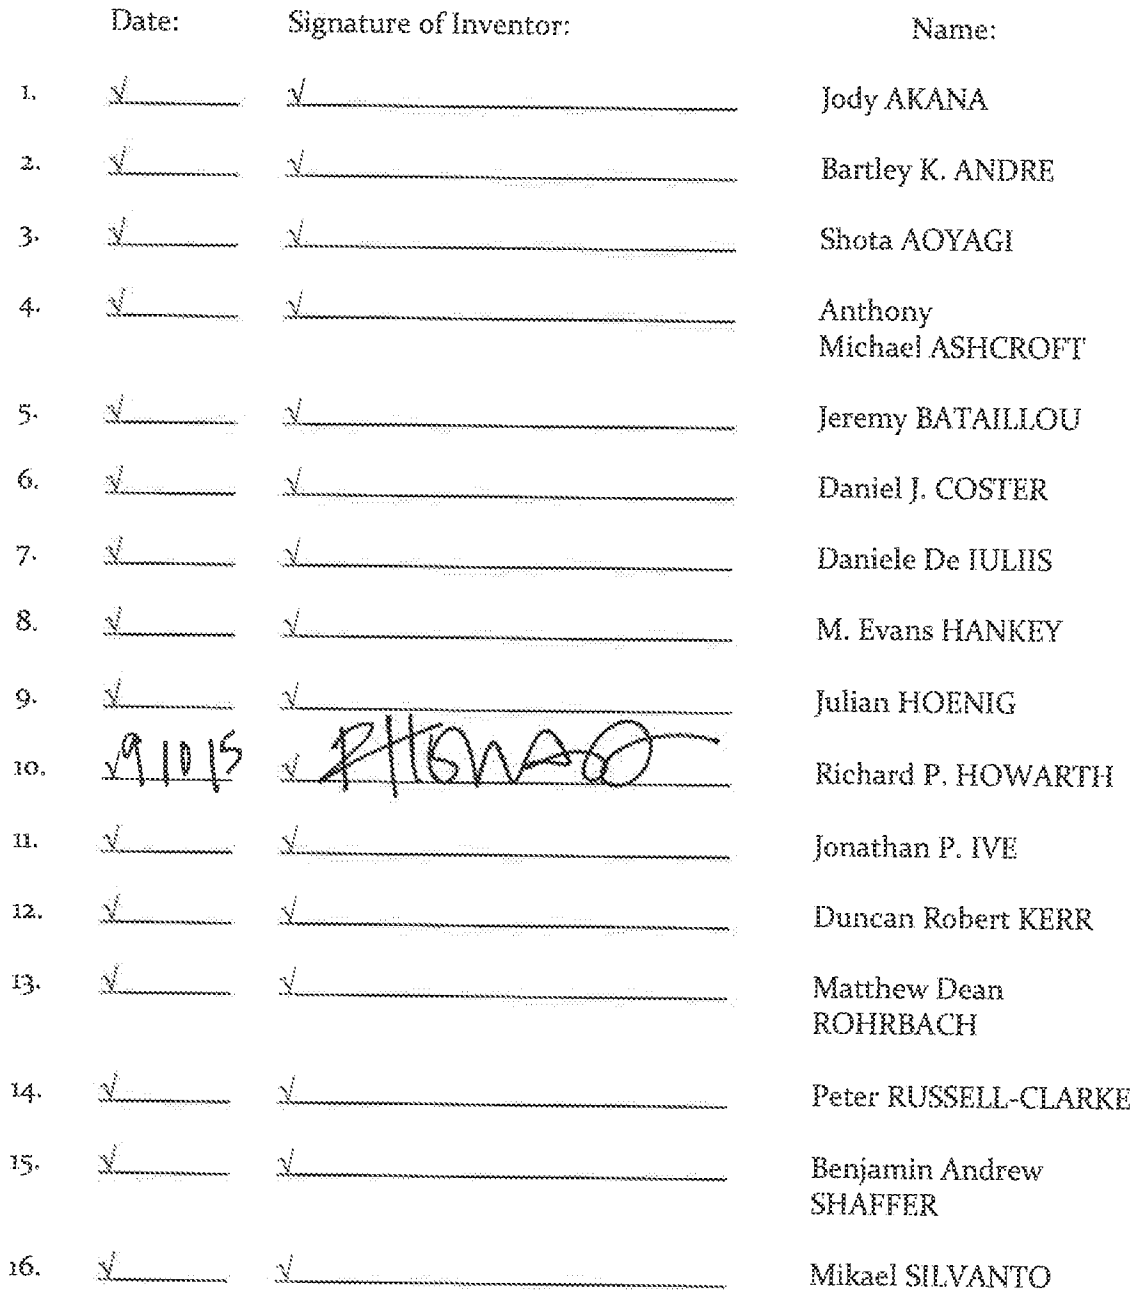 Date: Signature of Inventor: Name:
1. √ √ Jody AKANA
2. √ √ Bartley K. ANDRE
3. √ √ Shota AOYAGI
4. √ √ Anthony
Michael ASHCROFT
5. √ √ Jeremy BATAILLOU
6. √ √ Daniel J. COSTER
7. √ √ Daniele De IULIIS
8. √ √ M. Evans HANKEY
9. √ √ Julian HOENIG
10. √ 9 10 15 √ Richard P. HOWARTH
11. √ √ Jonathan P. IVE
12. √ √ Duncan Robert KERR
13. √ √ Matthew Dean
ROHRBACH
14. √ √ Peter RUSSELL-CLARKE
15. √ √ Benjamin Andrew
SHAFFER
16. √ √ Mikael SILVANTO